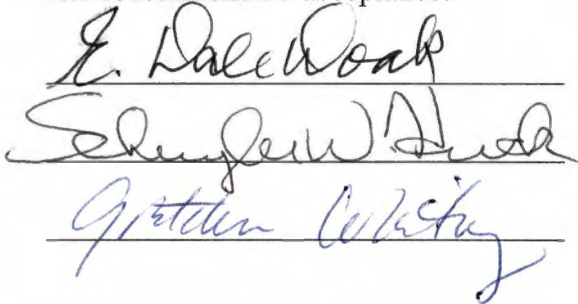 E. Dale Doak
Schuyler W. Huck
Gretchen Whitney